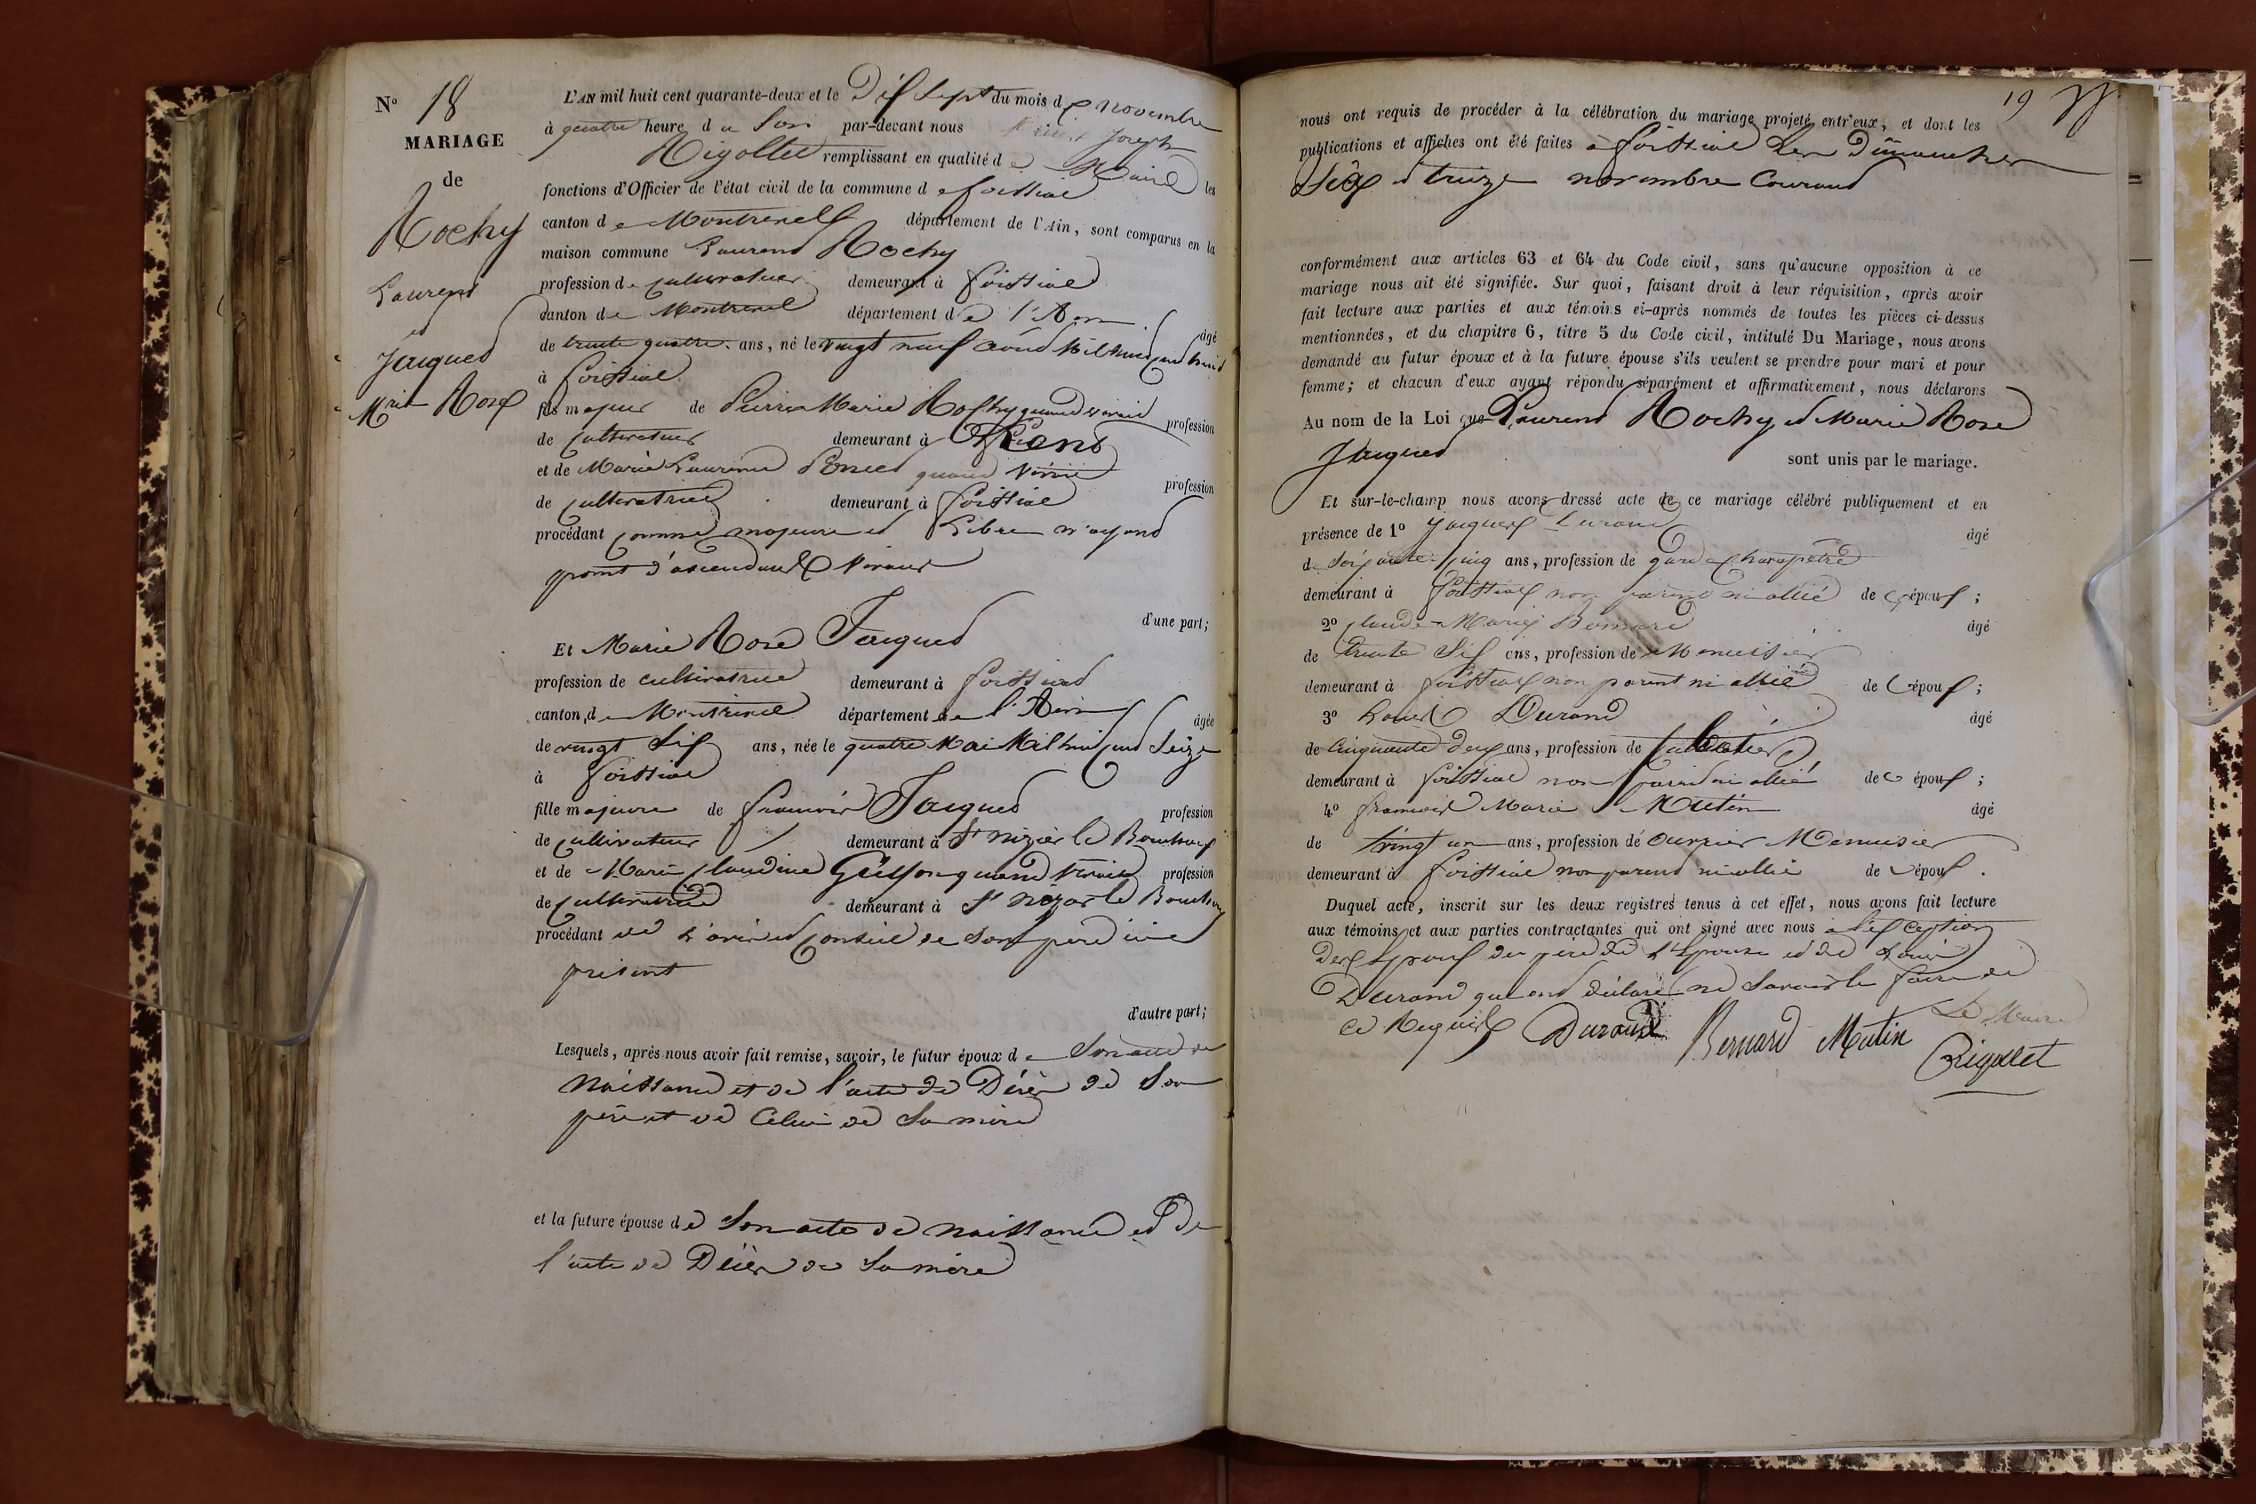 Nº 18
MARIAGE
de
Rochy
Laurent
et
Jaques
Mrie Rose
L'AN mil huit cent quarante-deux et le Dix Sept du mois de novembre
à quatre heure du Soir par-devant nous Joseph
Rigollet remplissant en qualité de Maire les
fonctions d'Officier de l'état civil de la commune de foissiat
canton de Montrevel département de l'Ain, sont comparus en la
maison commune Laurent Rochy
profession de cultivateur demeurant à foissiat
canton de Montrevel département de l'Ain âgé
de trente quatre ans, né le vingt neuf août Mil huit cent huit
à foissiat
fils majeur de Pierre Marie Rochy quand vivait profession
de cultivateur demeurant à
et de Marie Laurence quand vivait profession
de cultivatrice demeurant à foissiat
procédant comme majeur et Libre n'ayant
point d'ascendants vivants
d'une part;
Et Marie Rose Jaques
profession de cultivatrice demeurant à foissiat
canton de Montrevel département de l'Ain âgée
de vingt Six ans, née le quatre Mai Mil huit cent Seize
à foissiat
fille majeure de francois Jaques profession
de cultivateur demeurant à St nizier le Bouchoux
et de Marie Claudine quand vivait profession
de cultivatrice demeurant à St nizier le Bouchoux
procédant de l'avis et conseil de son père ici
présent
d'autre part;
Lesquels, après nous avoir fait remise, savoir, le futur époux de Son acte de
naissance et de l'acte de Décès de Son
père et de Celui de Sa mère
et la future épouse de Son acte de naissance et de
l'acte de Décès de Sa mère
19
nous ont requis de procéder à la célébration du mariage projeté entr'eux, et dont les
publications et affiches ont été faites à foissiat Les Dimanches
Six et treize novembre Courant
conformément aux articles 63 et 64 du Code civil, sans qu'aucune opposition à ce
mariage nous ait été signifiée. Sur quoi, faisant droit à leur réquisition, après avoir
fait lecture aux parties et aux témoins ci-après nommés de toutes les pièces ci-dessus
mentionnées, et du chapitre 6, titre 5 du Code civil, intitulé Du Mariage, nous avons
demandé au futur époux et à la future épouse s'ils veulent se prendre pour mari et pour
femme; et chacun d'eux ayant répondu séparément et affirmativement, nous déclarons
Au nom de la Loi que Laurent Rochy et Marie Rose
Jaques sont unis par le mariage.
Et sur-le-champ nous avons dressé acte de ce mariage célébré publiquement et en
présence de 1º Jaques Durand âgé
de Soixante cinq ans, profession de garde champêtre
demeurant à foissiat non parent ni allié des époux;
2º Claude Marie Bernard âgé
de trente Six ans, profession de Menuisier
demeurant à foissiat non parent ni allié des époux;
3º Louis Durand âgé
de Cinquante Deux ans, profession de
demeurant à foissiat non parent ni allié des époux;
4º francois Marie Mutin âgé
de vingt un ans, profession de ouvrier Menuisier
demeurant à foissiat non parent ni allié des époux.
Duquel acte, inscrit sur les deux registres tenus à cet effet, nous avons fait lecture
aux témoins et aux parties contractantes qui ont signé avec nous à l'exception
des Epoux du père de l'Epouse et de Louis
Durand qui ont déclaré ne Savoir le faire de
ce Requis Durand Bernard Mutin Le Maire
Rigollet